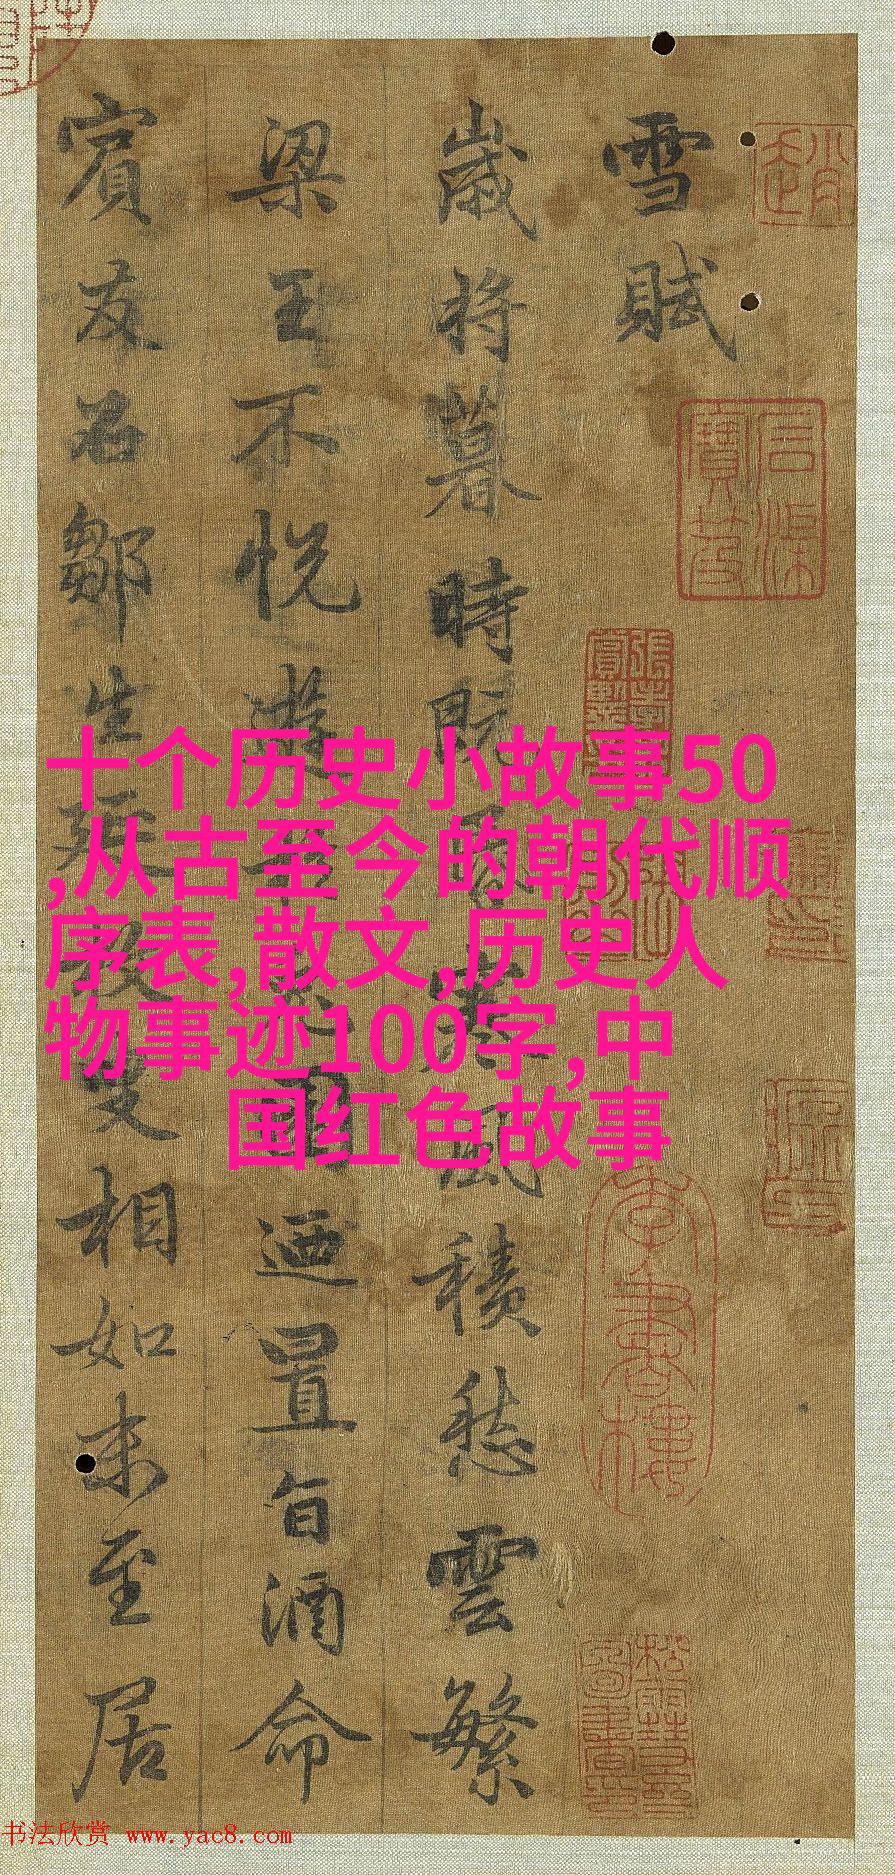 雪賦
歲將暮時既昏寒風積愁雲繁
梁王不悅遊園廼置旨酒命
賓友召鄒生延枚叟相如末至居
十个历史小故事50
,从古至今的朝代顺
序表,散文,历史人
物事迹100字,中
国红色故事
书法欣赏 www.yac8.com